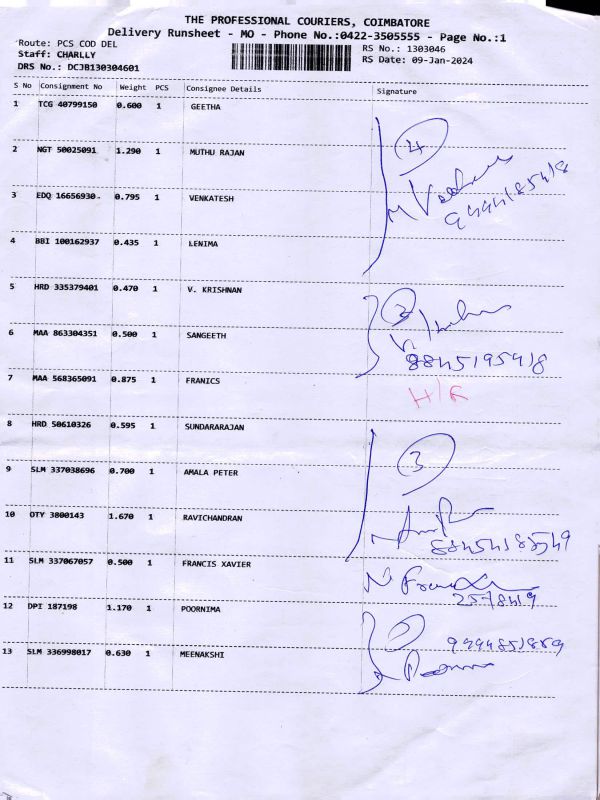 THE PROFESSIONAL COURIERS, COIMBATORE
Delivery Runsheet - MO - Phone No.:0422-3505555 - Page No.:1
Route: PCS COD DEL
Staff: CHARLLY
DRS No.: DCJB130304601
RS No.: 1303046
RS Date: 09-Jan-2024
S No Consignment No Weight PCS Consignee Details Signature
1 TCG 40799150 0.600 1 GEETHA
2 NGT 50025091 1.290 1 MUTHU RAJAN
3 EDQ 16656930 0.795 1 VENKATESH
4 BBI 100162937 0.435 1 LENIMA
4
5 HRD 335379401 0.470 1 V. KRISHNAN
6 MAA 863304351 0.500 1 SANGEETH
2
7 MAA 568365091 0.875 1 FRANICS
8 HRD 50610326 0.595 1 SUNDARARAJAN
9 SLM 337038696 0.700 1 AMALA PETER
3
10 OTY 3800143 1.670 1 RAVICHANDRAN
11 SLM 337067057 0.500 1 FRANCIS XAVIER
12 DPI 187198 1.170 1 POORNIMA
13 SLM 336998017 0.630 1 MEENAKSHI